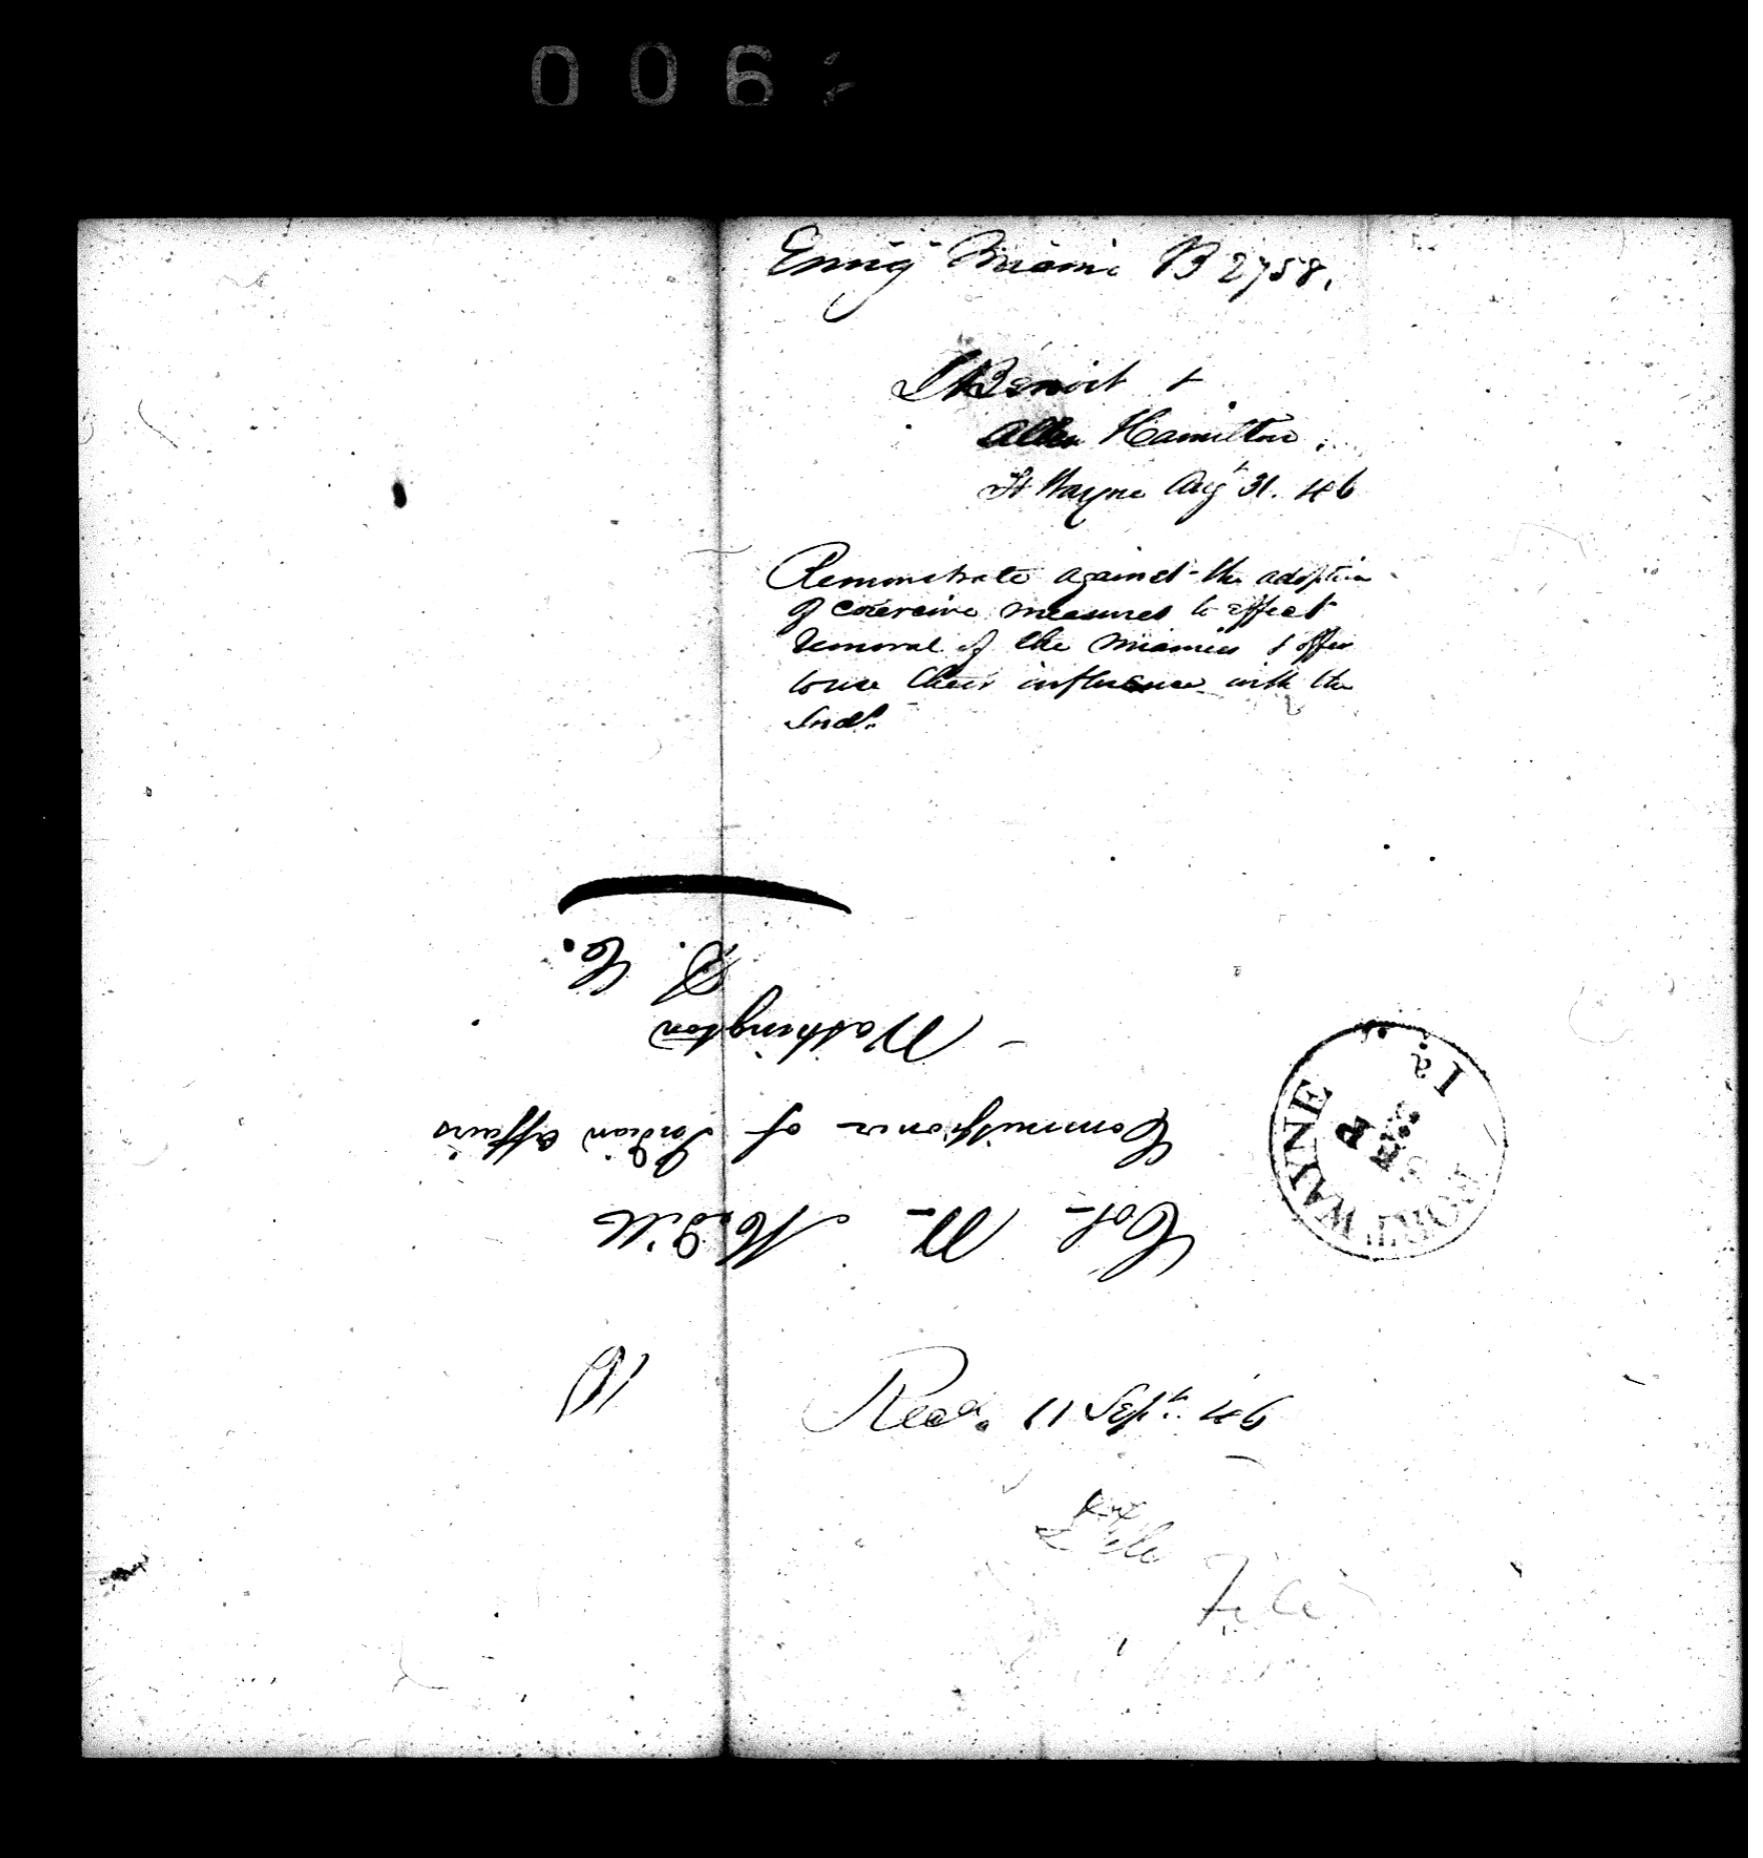 006
Emig Miami B 2758.
J Benoit &
Allen Hamilton.
Ft Wayne Augt 31. 46
Remonstrate against the adoption
of coercive measures to effect
removal of the Miamies & offer
to use their influence with the
Inds.
Col. Wm Medill
Commissioner of Indian Affairs
Washington
D. C.
FORT WAYNE
SEP
Ia.
10
Recd. 11 Sept. 46
File